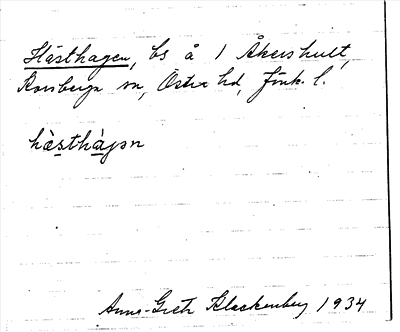 Hästhagen, bs å 1 Åkershult,
Korsberga sn, Östra hd, Jönk. l.
hàsthàgən
Anna-Greta Klackenberg 1934